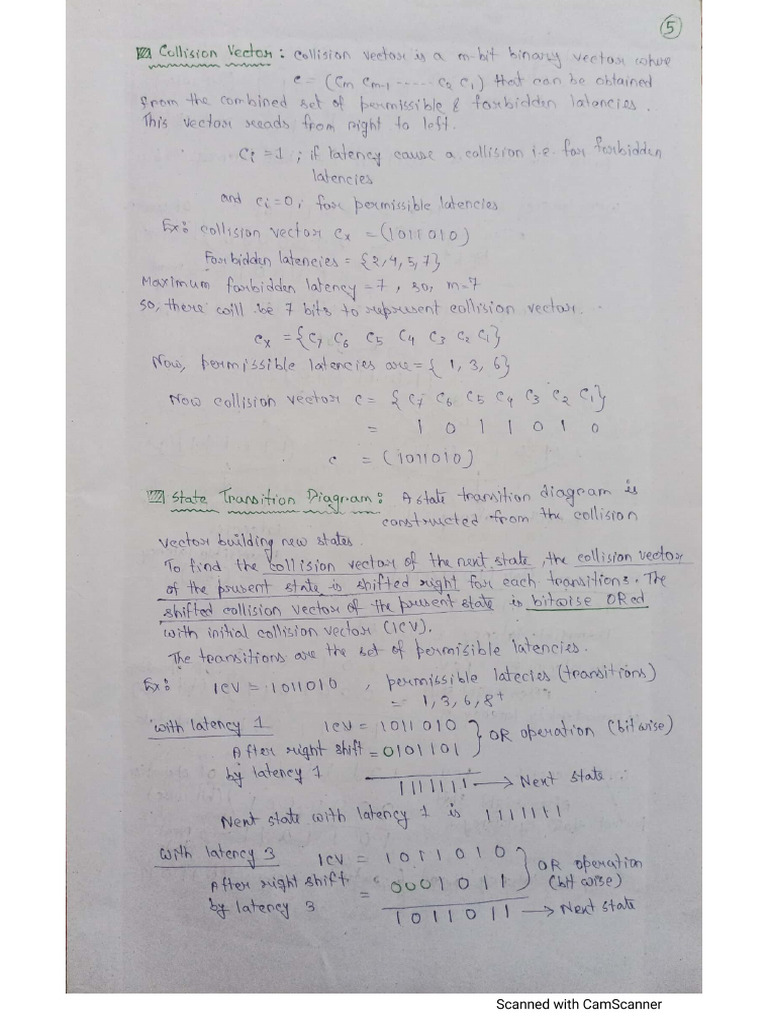 5
Collision Vector : Collision vector is a m-bit binary vector where
c = (Cm Cm-1 ----- C2 C1) that can be obtained
from the combined set of permissible & forbidden latancies.
This vector reads from right to left.
Ci = 1 ; if latency cause a collision i.e. for forbidden
latencies
and Ci = 0, for permissible latencies
Ex: collision vector Cx = (1011010)
Forbidden latencies = {2,4,5,7}
Maximum forbidden latency = 7, so, m=7
So, there will be 7 bits to represent collision vector.
Cx = {C7 C6 C5 C4 C3 C2 C1}
Now, permissible latencies are = { 1, 3, 6}
Now collision vector c = {C7 C6 C5 C4 C3 C2 C1}
= 1 0 1 1 0 1 0
c = (1011010)
State Transition Diagram : A state transition diagram is
constructed from the collision
vector building new states.
To find the collision vector of the next state, the collision vector
of the present state is shifted right for each transitions. The
shifted collision vector of the present state is bitwise ORed
with initial collision vector (ICV).
The transitions are the set of permisible latencies.
Ex: ICV = 1011010, permissible latecies (transitions)
= 1, 3, 6, 8+
With latency 1 ICV = 1011010 } OR operation (bitwise)
After right shift = 0101101
by latency 1 1111111 → Next state.
Next state with latency 1 is 1111111
With latency 3 ICV = 1011010 } OR operation
After right shift = 0001011 (bit wise)
by latency 3 1011011 → Next state
Scanned with CamScanner